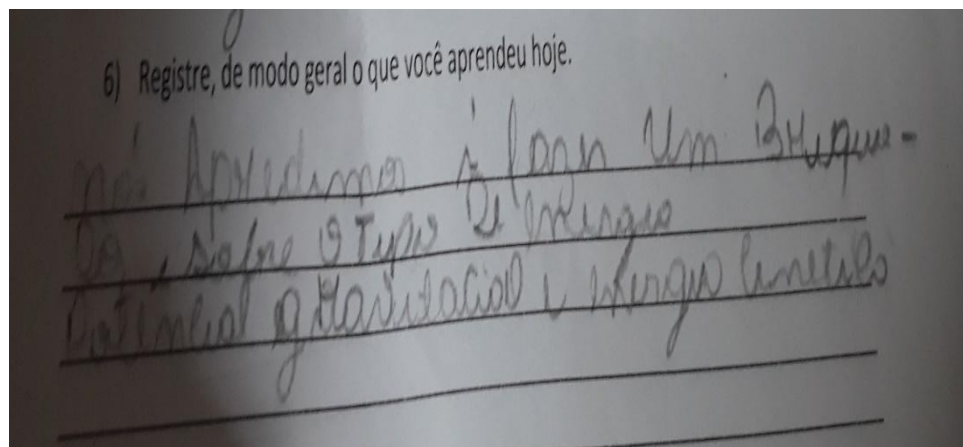 6) Registre, de modo geral o que você aprendeu hoje.
nós Apredemos A fazer um Bruque-
Do, sobre o Typo De energia
Potencial gravitacial e energia cinetica